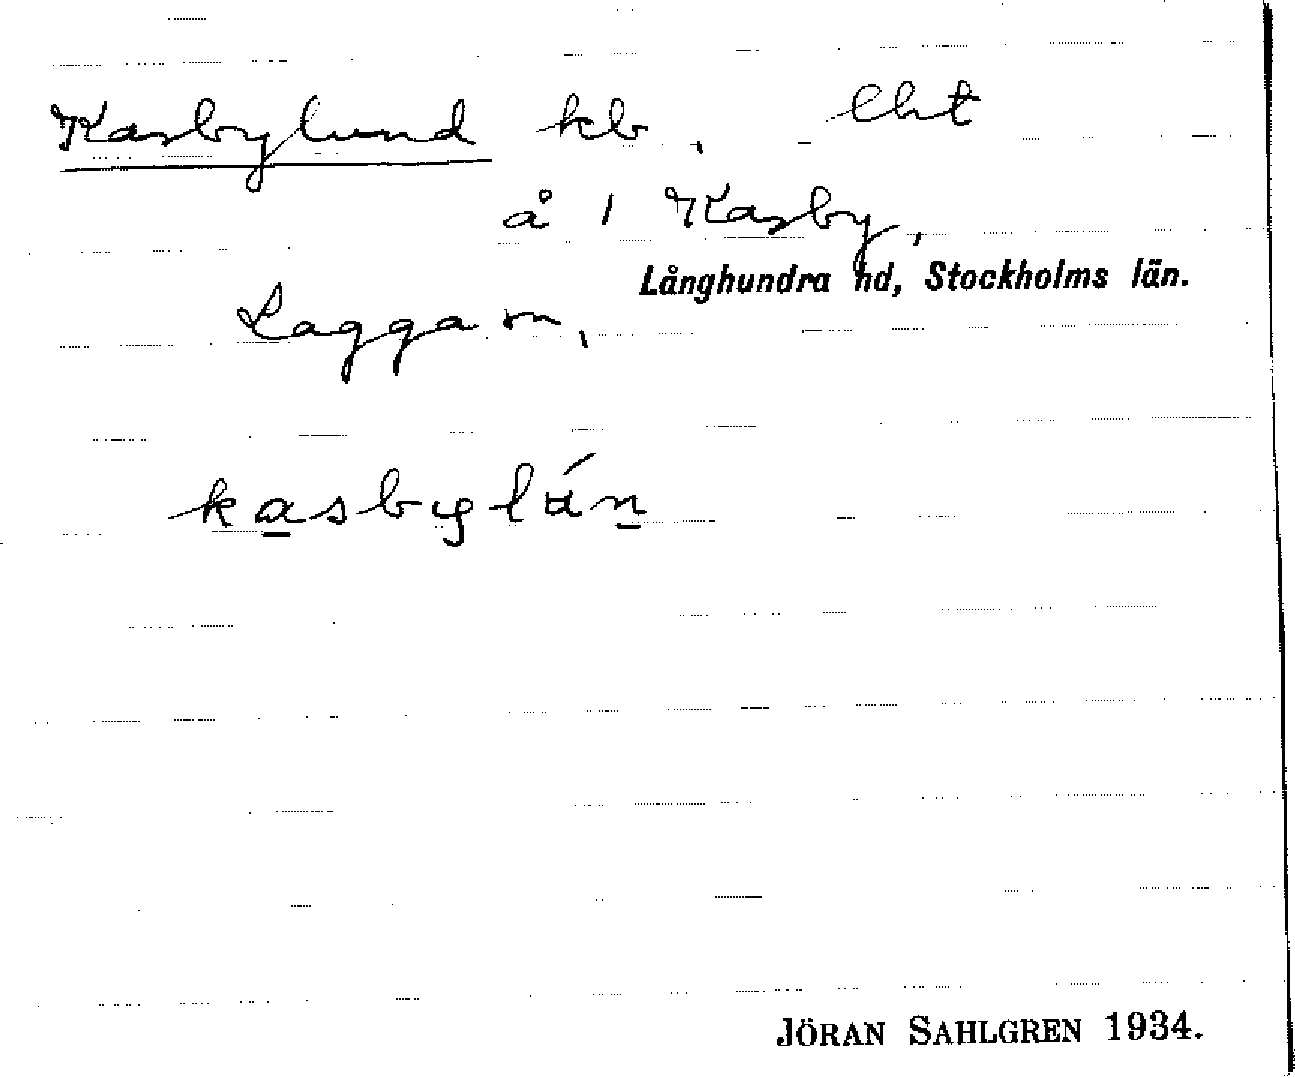 Kasbylund kb, lht
å 1 Kasby,
Långhundra hd, Stockholms län.
Lagga sn,
kasbylún
JÖRAN SAHLGREN 1934.